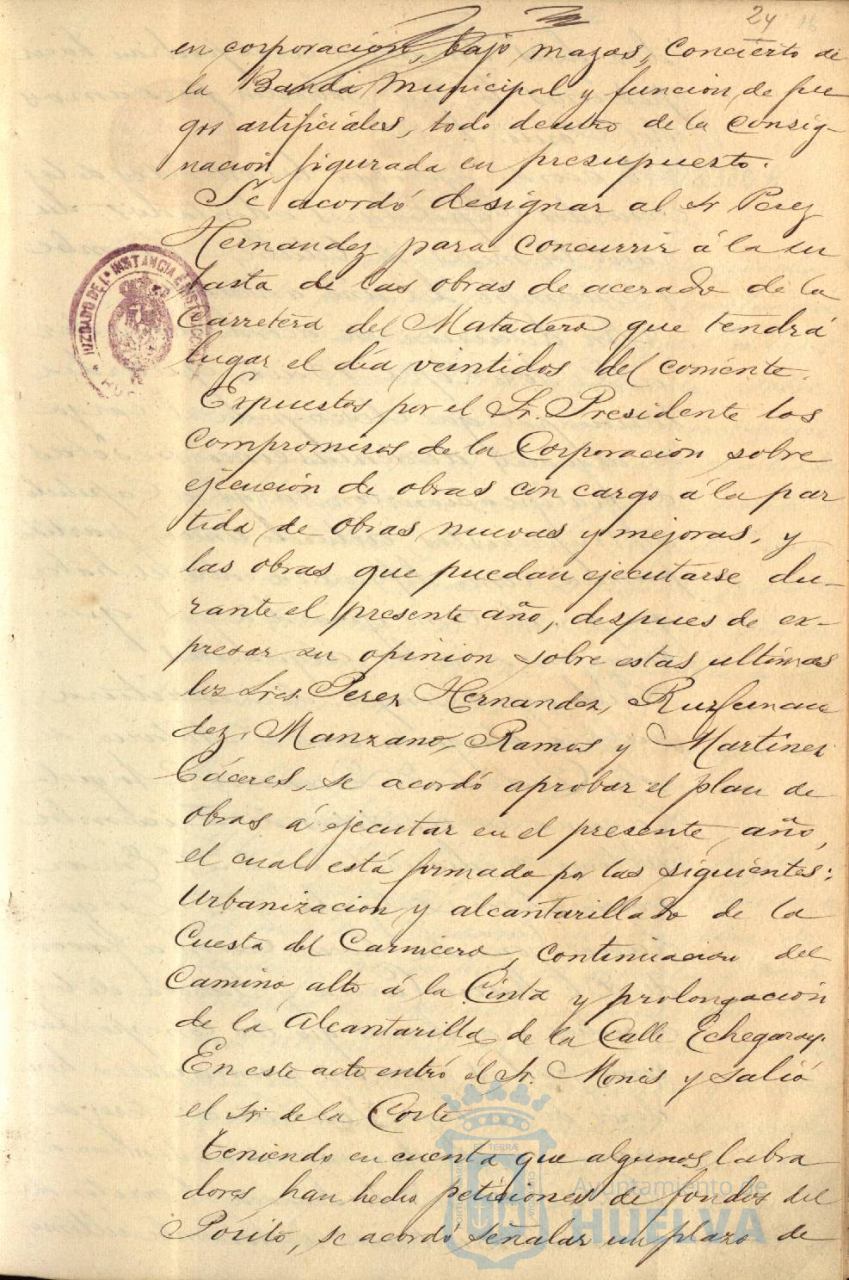 24
en corporación, bajo mazas, concierto de
la Banda Municipal y función de fue
gos artificiales, todo dentro de la consig-
nación figurada en presupuesto.
Se acordó designar al Sr Perez
Hernandez para concurrir á la su
basta de las obras de acerado de la
Carretera del Matadero que tendrá
lugar el día veintidos del corriente.
Expuestos por el Sr. Presidente los
compromisos de la Corporación sobre
ejecución de obras con cargo á la par
tida de obras nuevas y mejoras, y
las obras que puedan ejecutarse du-
rante el presente año, despues de ex-
presar su opinion sobre estas ultimas
los Sres. Perez Hernandez,
dez, Manzano, Ramos y Martínez
Cáceres, se acordó aprobar el plan de
obras á ejecutar en el presente año,
el cual está formado por las siguientes:
Urbanizacion y alcantarillado de la
Cuesta del Carnicero, continuacion del
Camino alto á la Cinta y prolongación
de la Alcantarilla de la Calle Echegaray.
En este acto entró el Sr. Monis y salió
el Sr. de la Corte
Teniendo en cuenta que algunos labra
dores han hecho peticiones de fondos del
Posito, se acordó señalar un plazo de
JUZGADO DE 1ª INSTANCIA E INSTRUCCIÓN
TERRÆ
Ayuntamiento de
HUELVA